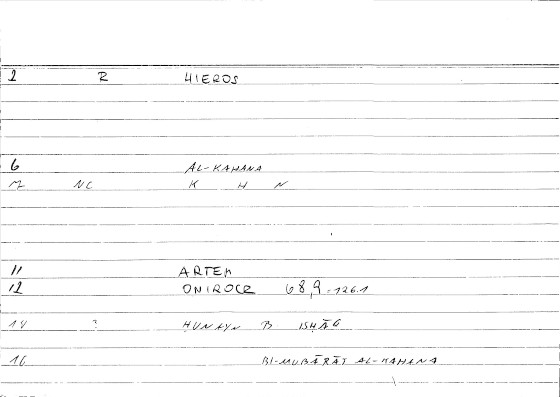 2 R HIEROS
6 AL-KAHANA
7 NC K H N
11 ARTEM
12 ONIROCR 68,9-126.1
14 ? ḤUNAYN B ISḤĀQ
16 BI-MUBĀRĀT AL-KAHANA